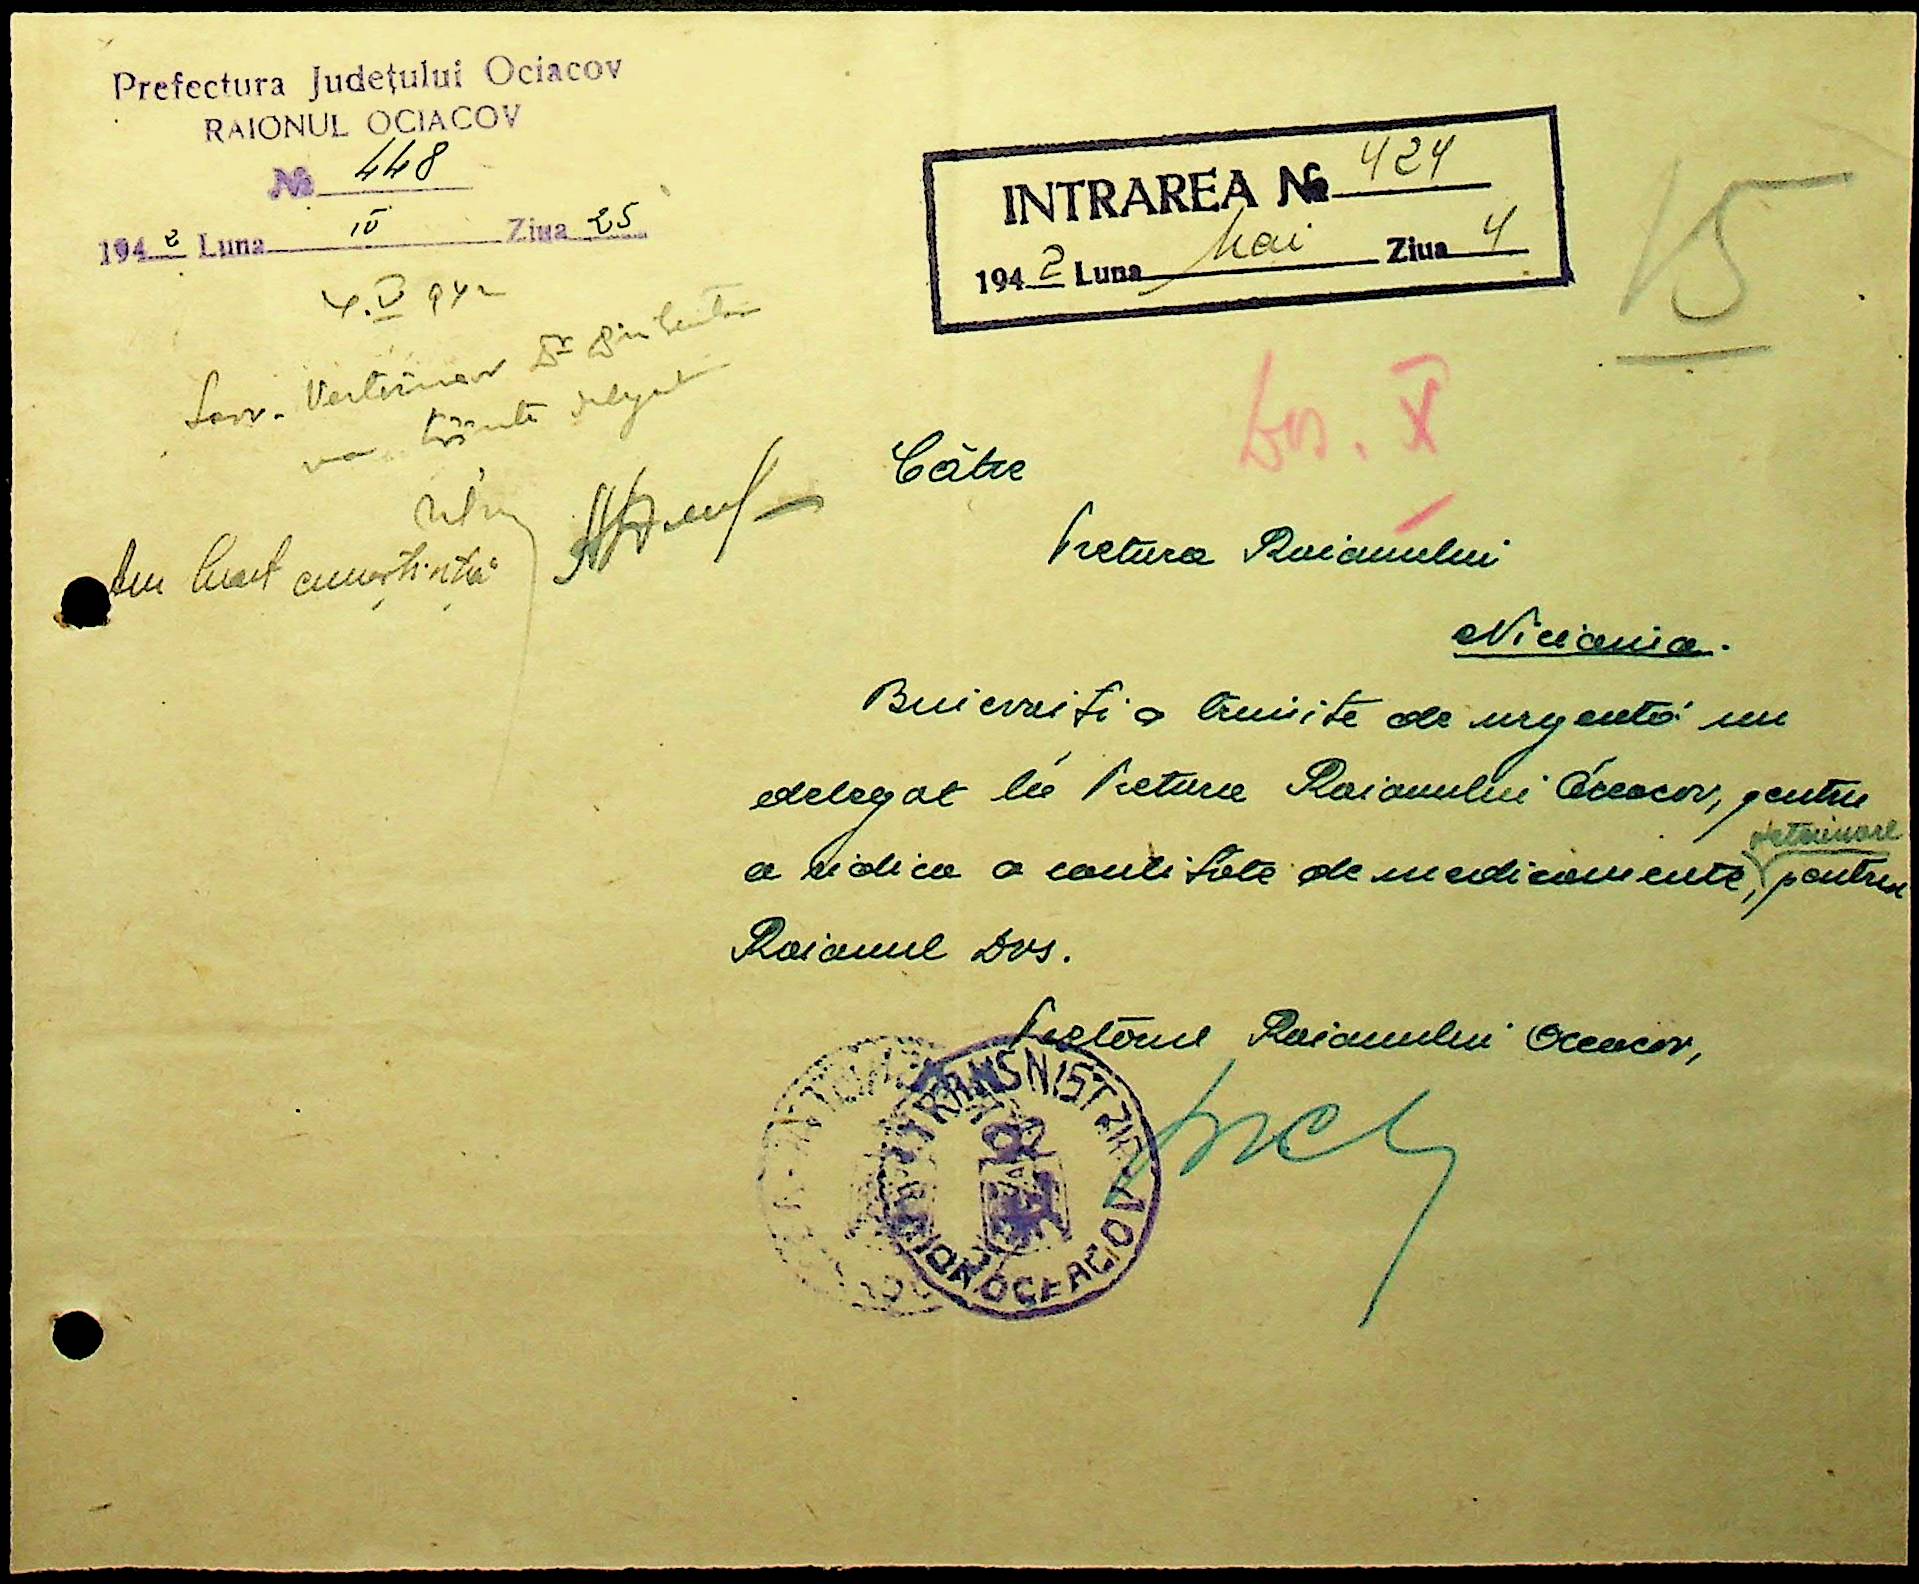 Prefectura Județului Ociacov
RAIONUL OCIACOV
№ 448
1942 Luna IV Ziua 25
INTRAREA № 424
1942 Luna Mai Ziua 4
15
4.V 942
Serv. Veterinar Dr
va trimite delegat
Am luat cunoștință
Dos. X
Către
Pretura Raionului
Buievoiți a trimite de urgență un
delegat la Pretura Raionului Oceacov, pentru
a ridica o cantitate de medicamente, veterinare pentru
Raionul Dvs.
Pretorul Raionului Oceacov,
TRANSNISTRIA
OCEACOV